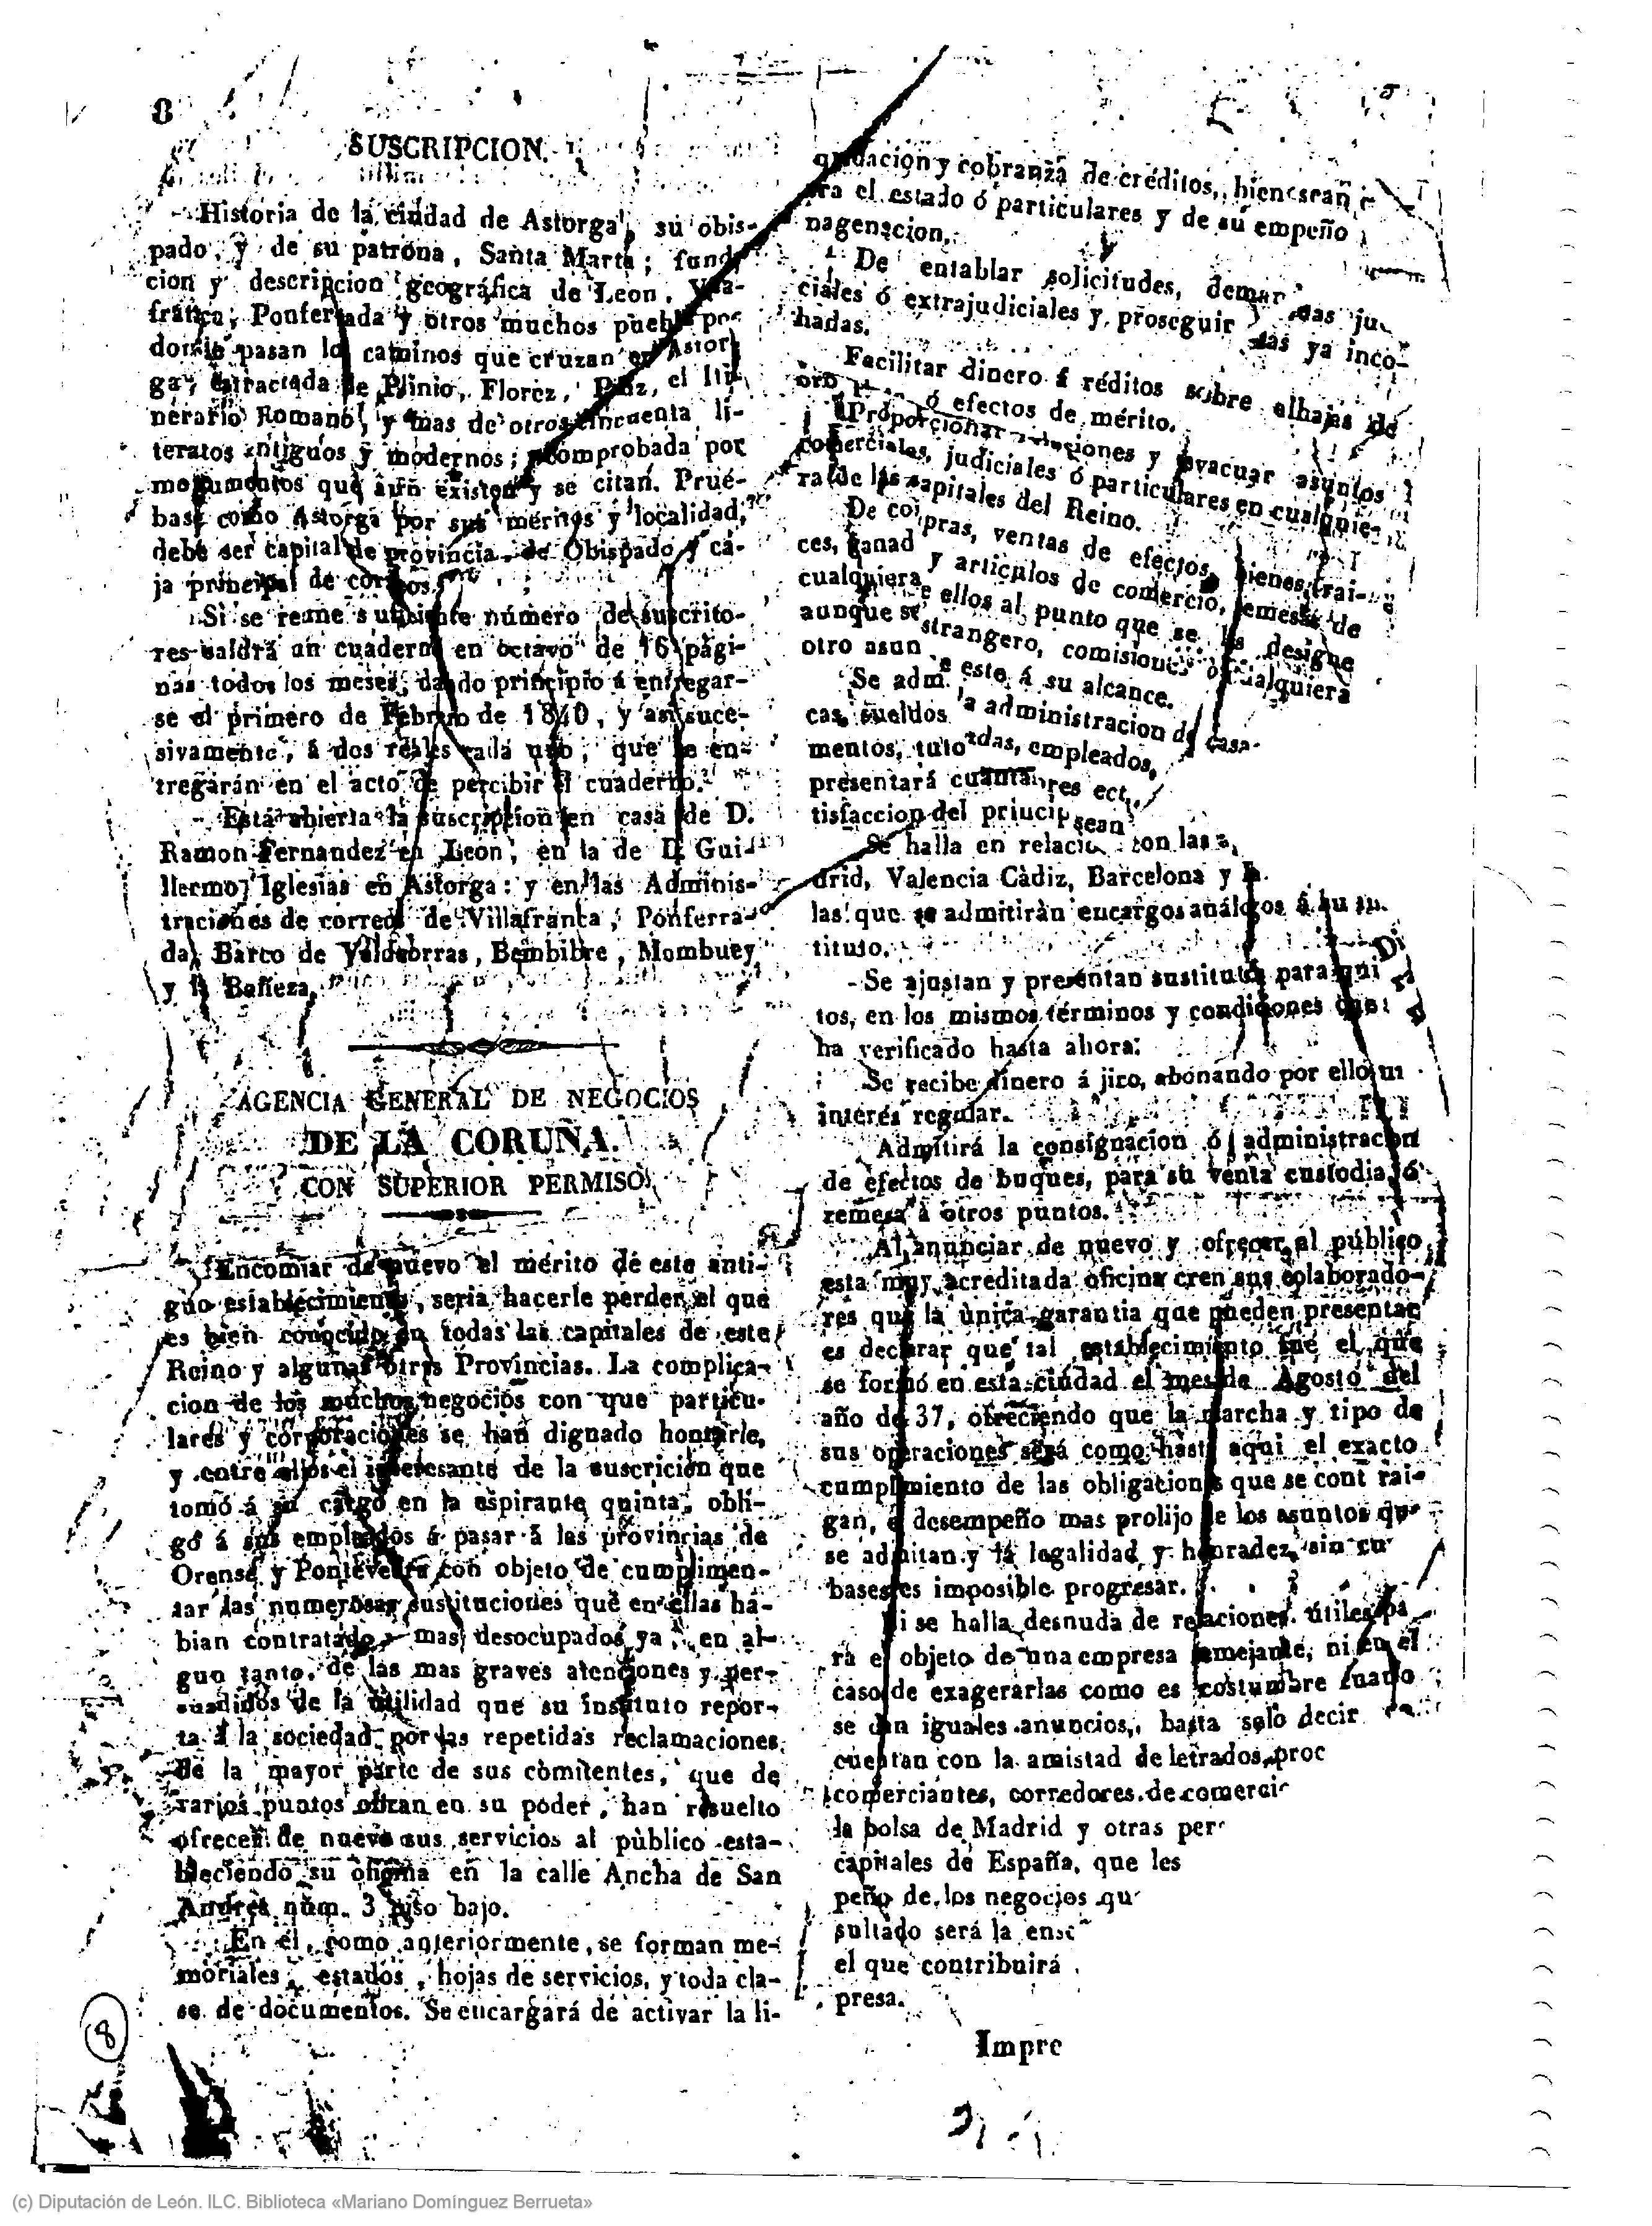 8
SUSCRIPCION.
Historia de la ciudad de Astorga, su obis-
pado, y de su patrona, Santa Marta; funda
cion y descripcion geográfica de Leon,
franca, Ponferrada y otros muchos pueblos por
donde pasan los caminos que cruzan en Astor
ga; estractada de Plinio, Florez, el Iti-
nerario Romano, y mas de otros cincuenta li-
teratos antiguos y modernos; comprobada por
monumentos que aun existen y se citan. Prué-
base como Astorga por sus meritos y localidad,
debe ser capital de provincia, de Obispado y ca-
ja principal de correos.
Si se reune suficiente número de suscrito-
res saldrá un cuaderno en octavo de 16 pági-
nas todos los meses, dando principio á entregar-
se el primero de Febrero de 1840, y asi suce-
sivamente, á dos reales cada uno, que se en-
tregarán en el acto de percibir el cuaderno.
Está abierta la suscripcion en casa de D.
Ramon Fernandez en Leon, en la de D. Gui-
llermo Iglesias en Astorga: y en las Adminis-
traciones de correos de Villafranca, Ponferra-
da, Barco de Valdeorras, Bembibre, Mombuey
y la Bañeza.
AGENCIA GENERAL DE NEGOCIOS
DE LA CORUÑA.
CON SUPERIOR PERMISO.
Encomiar de nuevo el mérito de este anti-
guo establecimiento, seria hacerle perder el que
es bien conocido en todas las capitales de este
Reino y algunas otras Provincias. La complica-
cion de los muchos negocios con que particu-
lares y corporaciones se han dignado honrarle,
y entre ellos el interesante de la suscrición que
tomó á su cargo en la espirante quinta, obli-
gó á sus empleados á pasar á las provincias de
Orense y Pontevedra con objeto de cumplimen-
tar las numerosas sustituciones que en ellas ha-
bian contratado, mas desocupados ya, en al-
gun tanto, de las mas graves atenciones y per-
suadidos de la utilidad que su instituto repor-
ta á la sociedad por las repetidas reclamaciones
de la mayor parte de sus comitentes, que de
varios puntos obran en su poder, han resuelto
ofrecer de nuevo sus servicios al pùblico esta-
bleciendo su oficina en la calle Ancha de San
Andres núm. 3 piso bajo.
En él, como anteriormente, se forman me-
moriales, estados, hojas de servicios, y toda cla-
se de documentos. Se encargará de activar la li-
quidacion y cobranza de créditos, bien sean
ra el estado ó particulares y de su empeño
nagenacion.
De entablar solicitudes, demandas ju
ciales ó extrajudiciales y proseguir las ya inco-
hadas.
Facilitar dinero á réditos sobre alhajas de
oro ó efectos de mérito.
Proporcionar y evacuar asuntos
comerciales, judiciales ó particulares en cualquie-
ra de las capitales del Reino.
De compras, ventas de efectos, bienes, rai-
ces, ganad y articulos de comercio, remesas de
cualquiera e ellos al punto que se les designe
aunque se strangero, comisiones ó cualquiera
otro asun e este á su alcance.
Se adm. la administracion de casa-
cas, sueldos adas, empleados,
mentos, tuto res ect.
presentará cuanta sean
tisfaccion del princip
Se halla en relacio con las
drid, Valencia Càdiz, Barcelona y
las que se admitiràn encargos análogos á su
tituto.
Se ajustan y presentan sustitutos para qui
tos, en los mismos términos y condiciones que
ha verificado hasta ahora.
Se recibe dinero á jiro, abonando por ello un
interés regular.
Admitirá la consignacion ó administracion
de efectos de buques, para su venta custodia, ó
remesa à otros puntos.
Al anunciar de nuevo y ofrecer al público
esta muy acreditada oficina cren sus colaborado-
res que la única garantia que pueden presentar
es declarar que tal establecimiento fué el que
se formó en esta ciudad el mes de Agosto del
año de 37, ofreciendo que la marcha y tipo de
sus operaciones será como hasta aqui el exacto
cumplimiento de las obligaciones que se cont rai-
gan, el desempeño mas prolijo de los asuntos que
se admitan y la legalidad y honradez, sin cu
bases es imposible progresar.
Ni se halla desnuda de relaciones útiles pa
ra el objeto de una empresa semejante, ni en el
caso de exagerarlas como es costumbre cuando
se dan iguales anuncios, basta solo decir
cuentan con la amistad de letrados, proc
comerciantes, corredores de comerci
la bolsa de Madrid y otras per
capitales de España, que les
peño de los negocios qu
sultado será la ens
el que contribuirá
presa.
Impre
8
(c) Diputación de León. ILC. Biblioteca «Mariano Domínguez Berrueta»